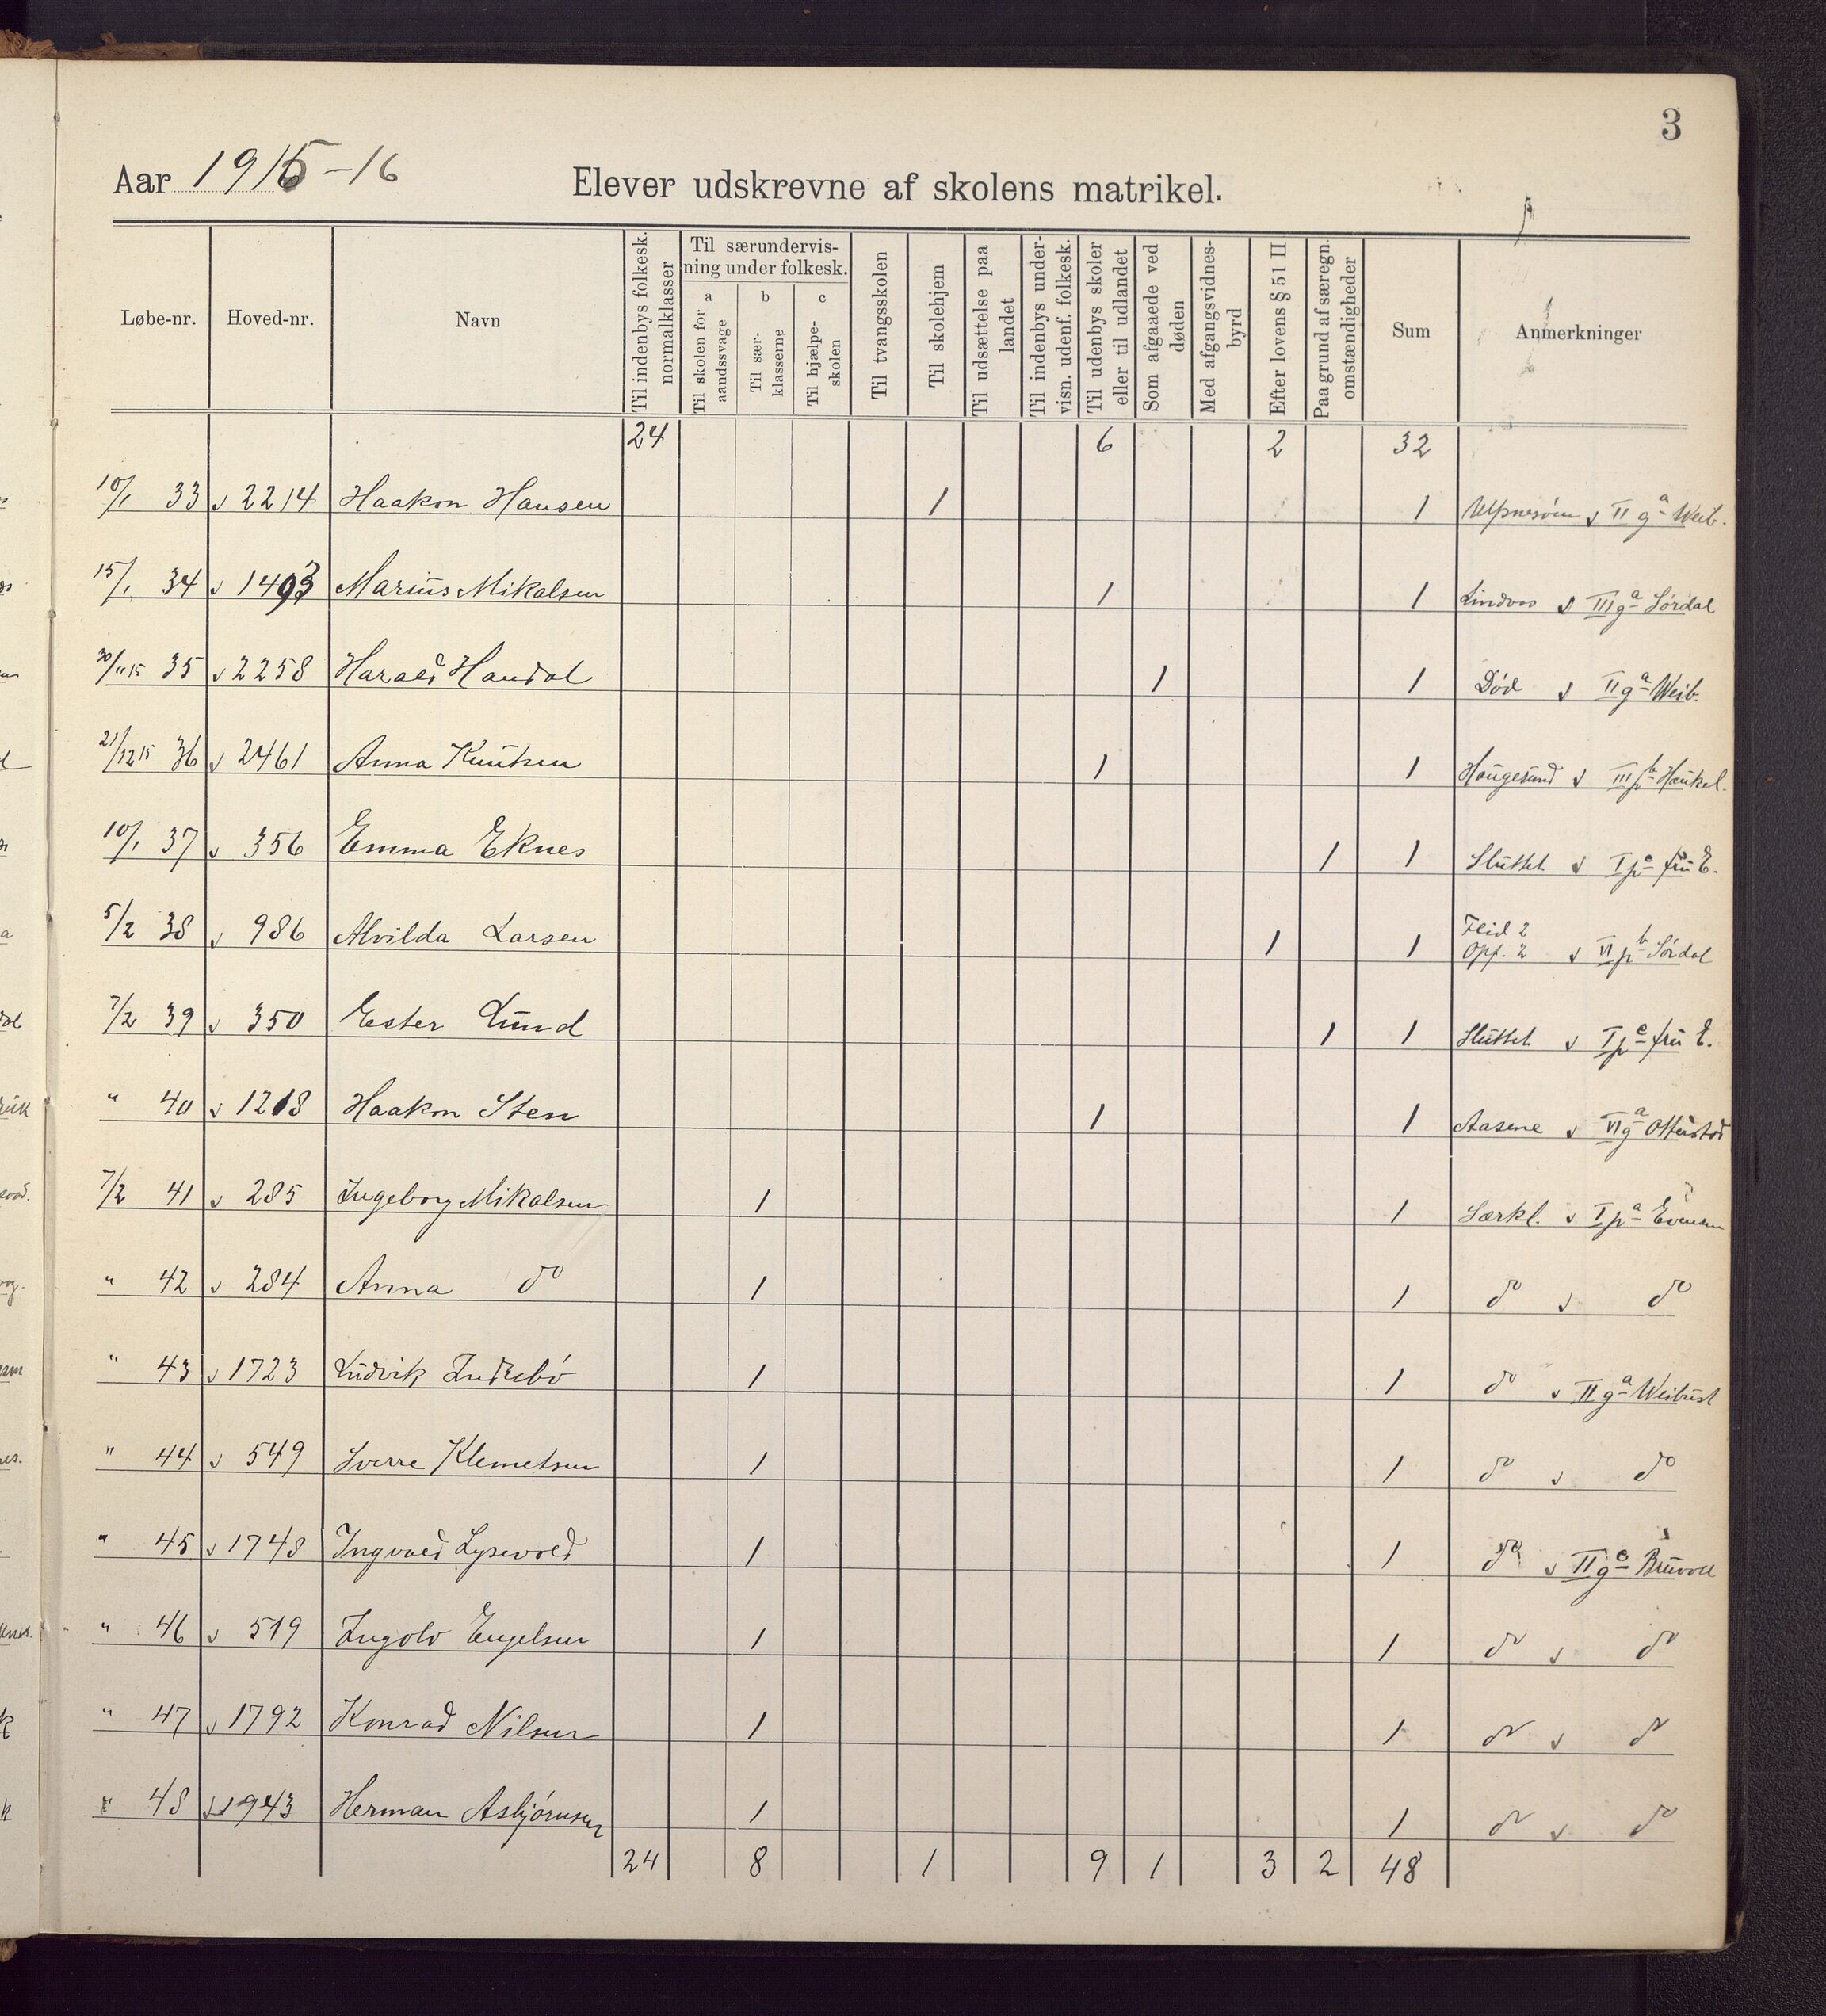 3
Aar 1915-16 Elever udskrevne af skolens matrikel.
Løbe-nr. Hoved-nr. Navn Til indenbys folkesk. normalklasser Til særundervisning under folkesk. a Til skolen for aandssvage b Til særklasserne c Til hjælpeskolen Til tvangsskolen Til skolehjem Til udsættelse paa landet Til indenbys undervisn. udenf. folkesk. Til udenbys skoler eller til udlandet Som afgaaede ved døden Med afgangsvidnesbyrd Efter lovens § 51 II Paa grund af særegn. omstændigheder Sum Anmerkninger
24 6 2 32
10/1 33 2214 Haakon Hansen 1 1 IIga Weib.
15/1 34 1493 Marius Mikalsen 1 1 Lindoos IIIga Sørdal
30/11 15 35 2258 Harald Haudal 1 1 Død IIga Weib.
21/12 15 36 2461 Anna Knutsen 1 1 Haugesund IIIpb Haukel.
10/1 37 356 Emma Eknes 1 1 Sluttet Ipe fru E.
5/2 38 986 Alvilda Larsen 1 1 Flid 2 Opf. 2 VIpb Sørdal
7/2 39 350 Ester Lund 1 1 Sluttet Ipe fru E.
" 40 1218 Haakon Sten 1 1 Aasene VIga Ottustad
7/2 41 285 Ingeborg Mikalsen 1 1 Særkl. Ipa Evensen
" 42 284 Anna do 1 1 do do
" 43 1723 Ludvik Indrebø 1 1 do IIga Weibust
" 44 549 Sverre Klemetsen 1 1 do do
" 45 1748 Ingvald Lysevold 1 1 do IIge Bruvoll
" 46 519 Ingolv Engelsen 1 1 do do
" 47 1792 Konrad Nilsen 1 1 do do
" 48 1943 Herman Asbjørnsen 1 1 do do
24 8 1 9 1 3 2 48